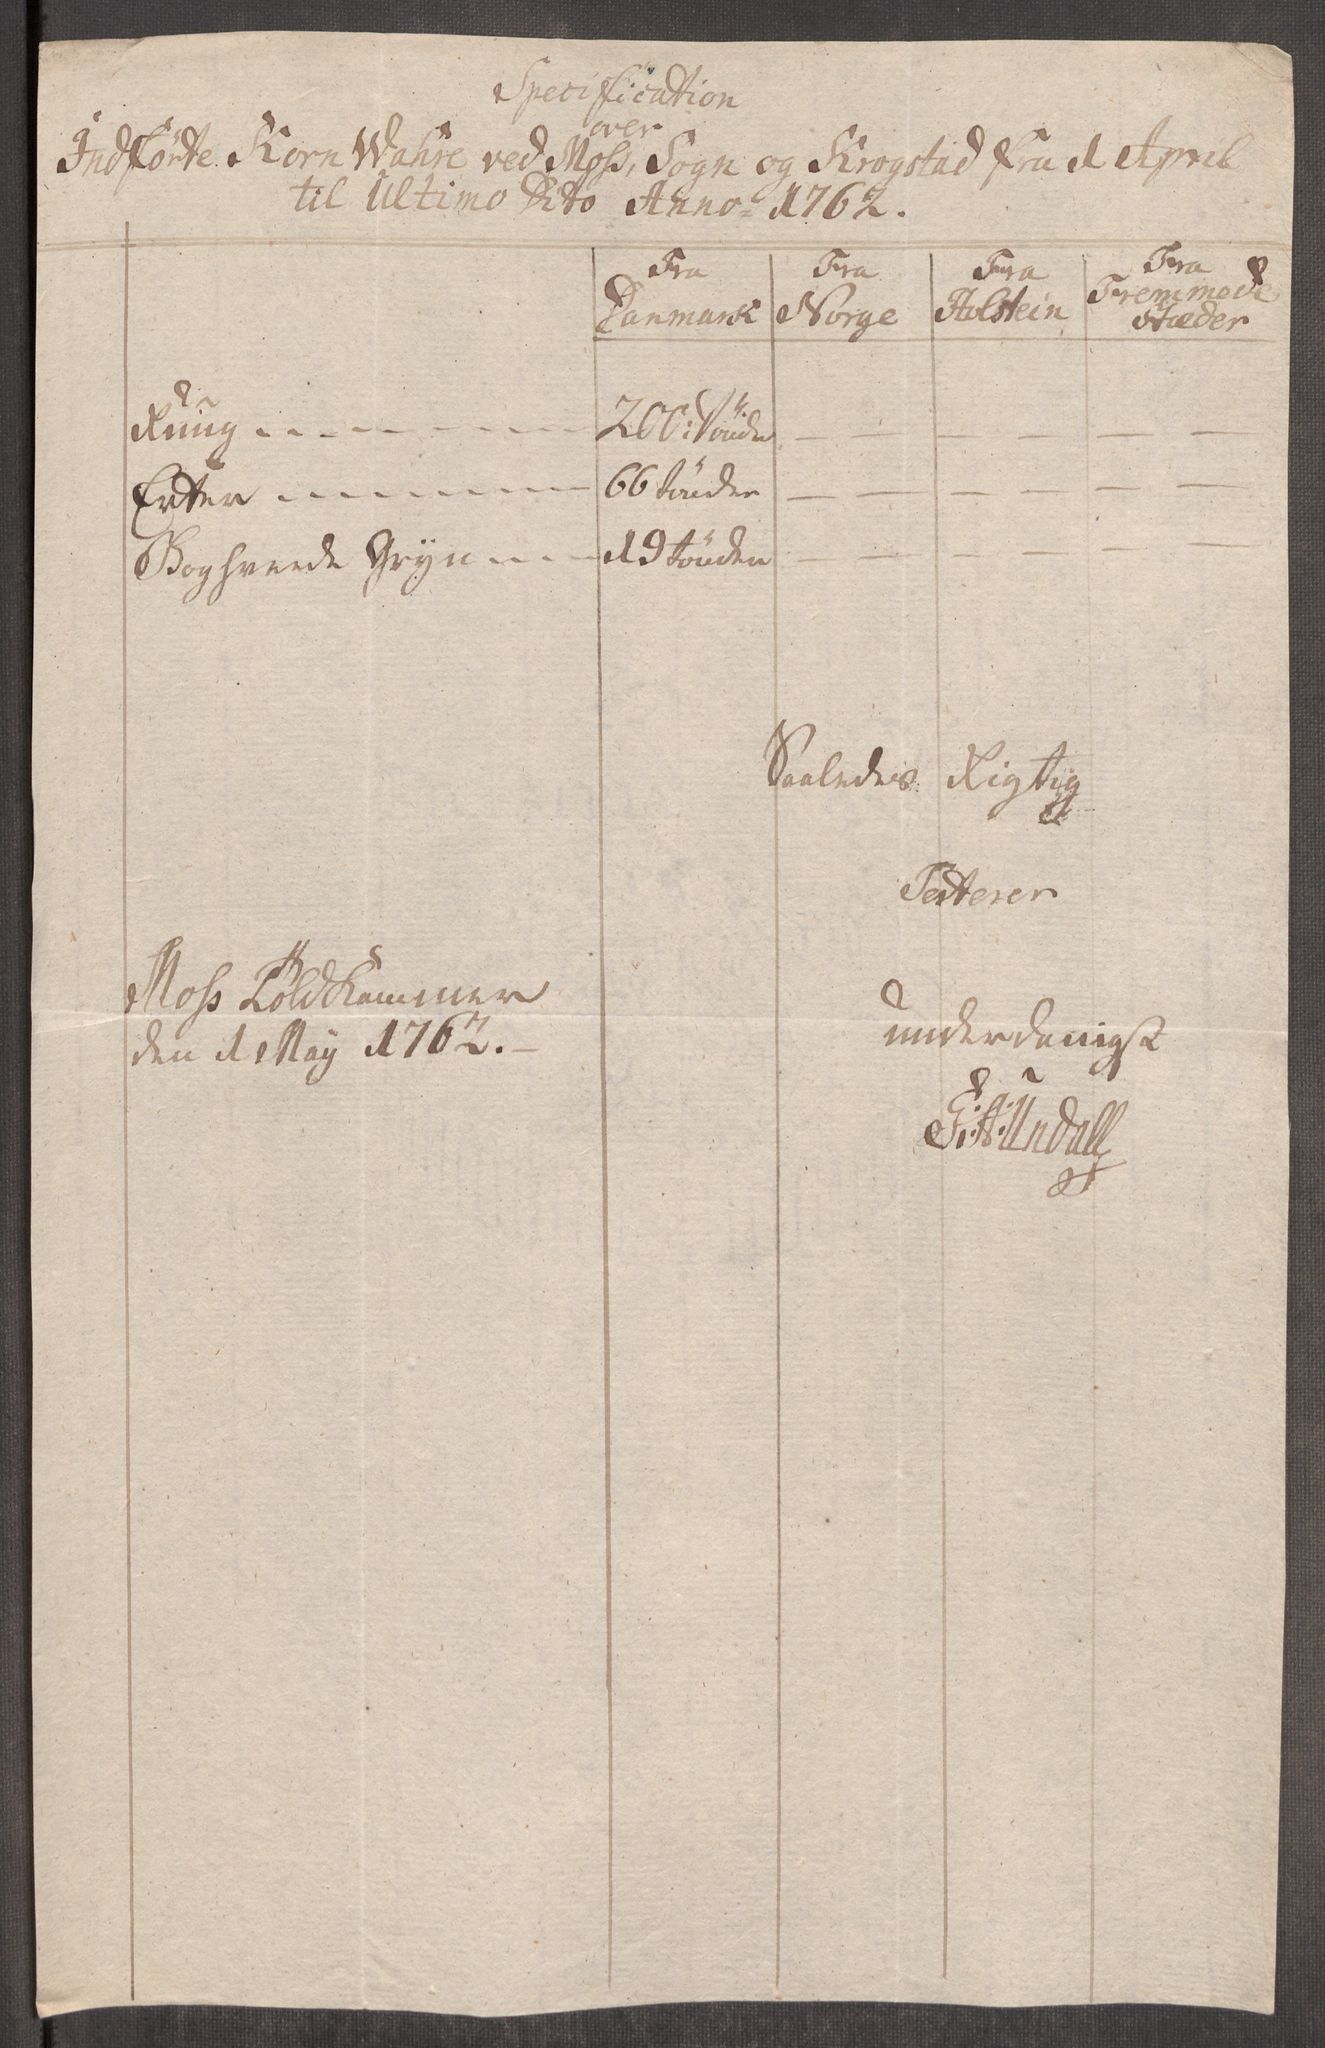 Specification
over
Indførte Korn Wahre ved Moss, Sogn og Krogstad fra 1 April
til Ultimo Dito Anno 1762.
Fra Danmark
Fra Norge
Fra Holstein
Fra Fremmede stæder
Ruug 200: Tönder — — — — — —
Erter 66 tönder — — — — — —
Boghvede Gryn 19 tönder — — — — — —
Saaledes Rigtig
Testerer
Moss Told Kammer
den 1 May 1762.
underdanigst
Undall